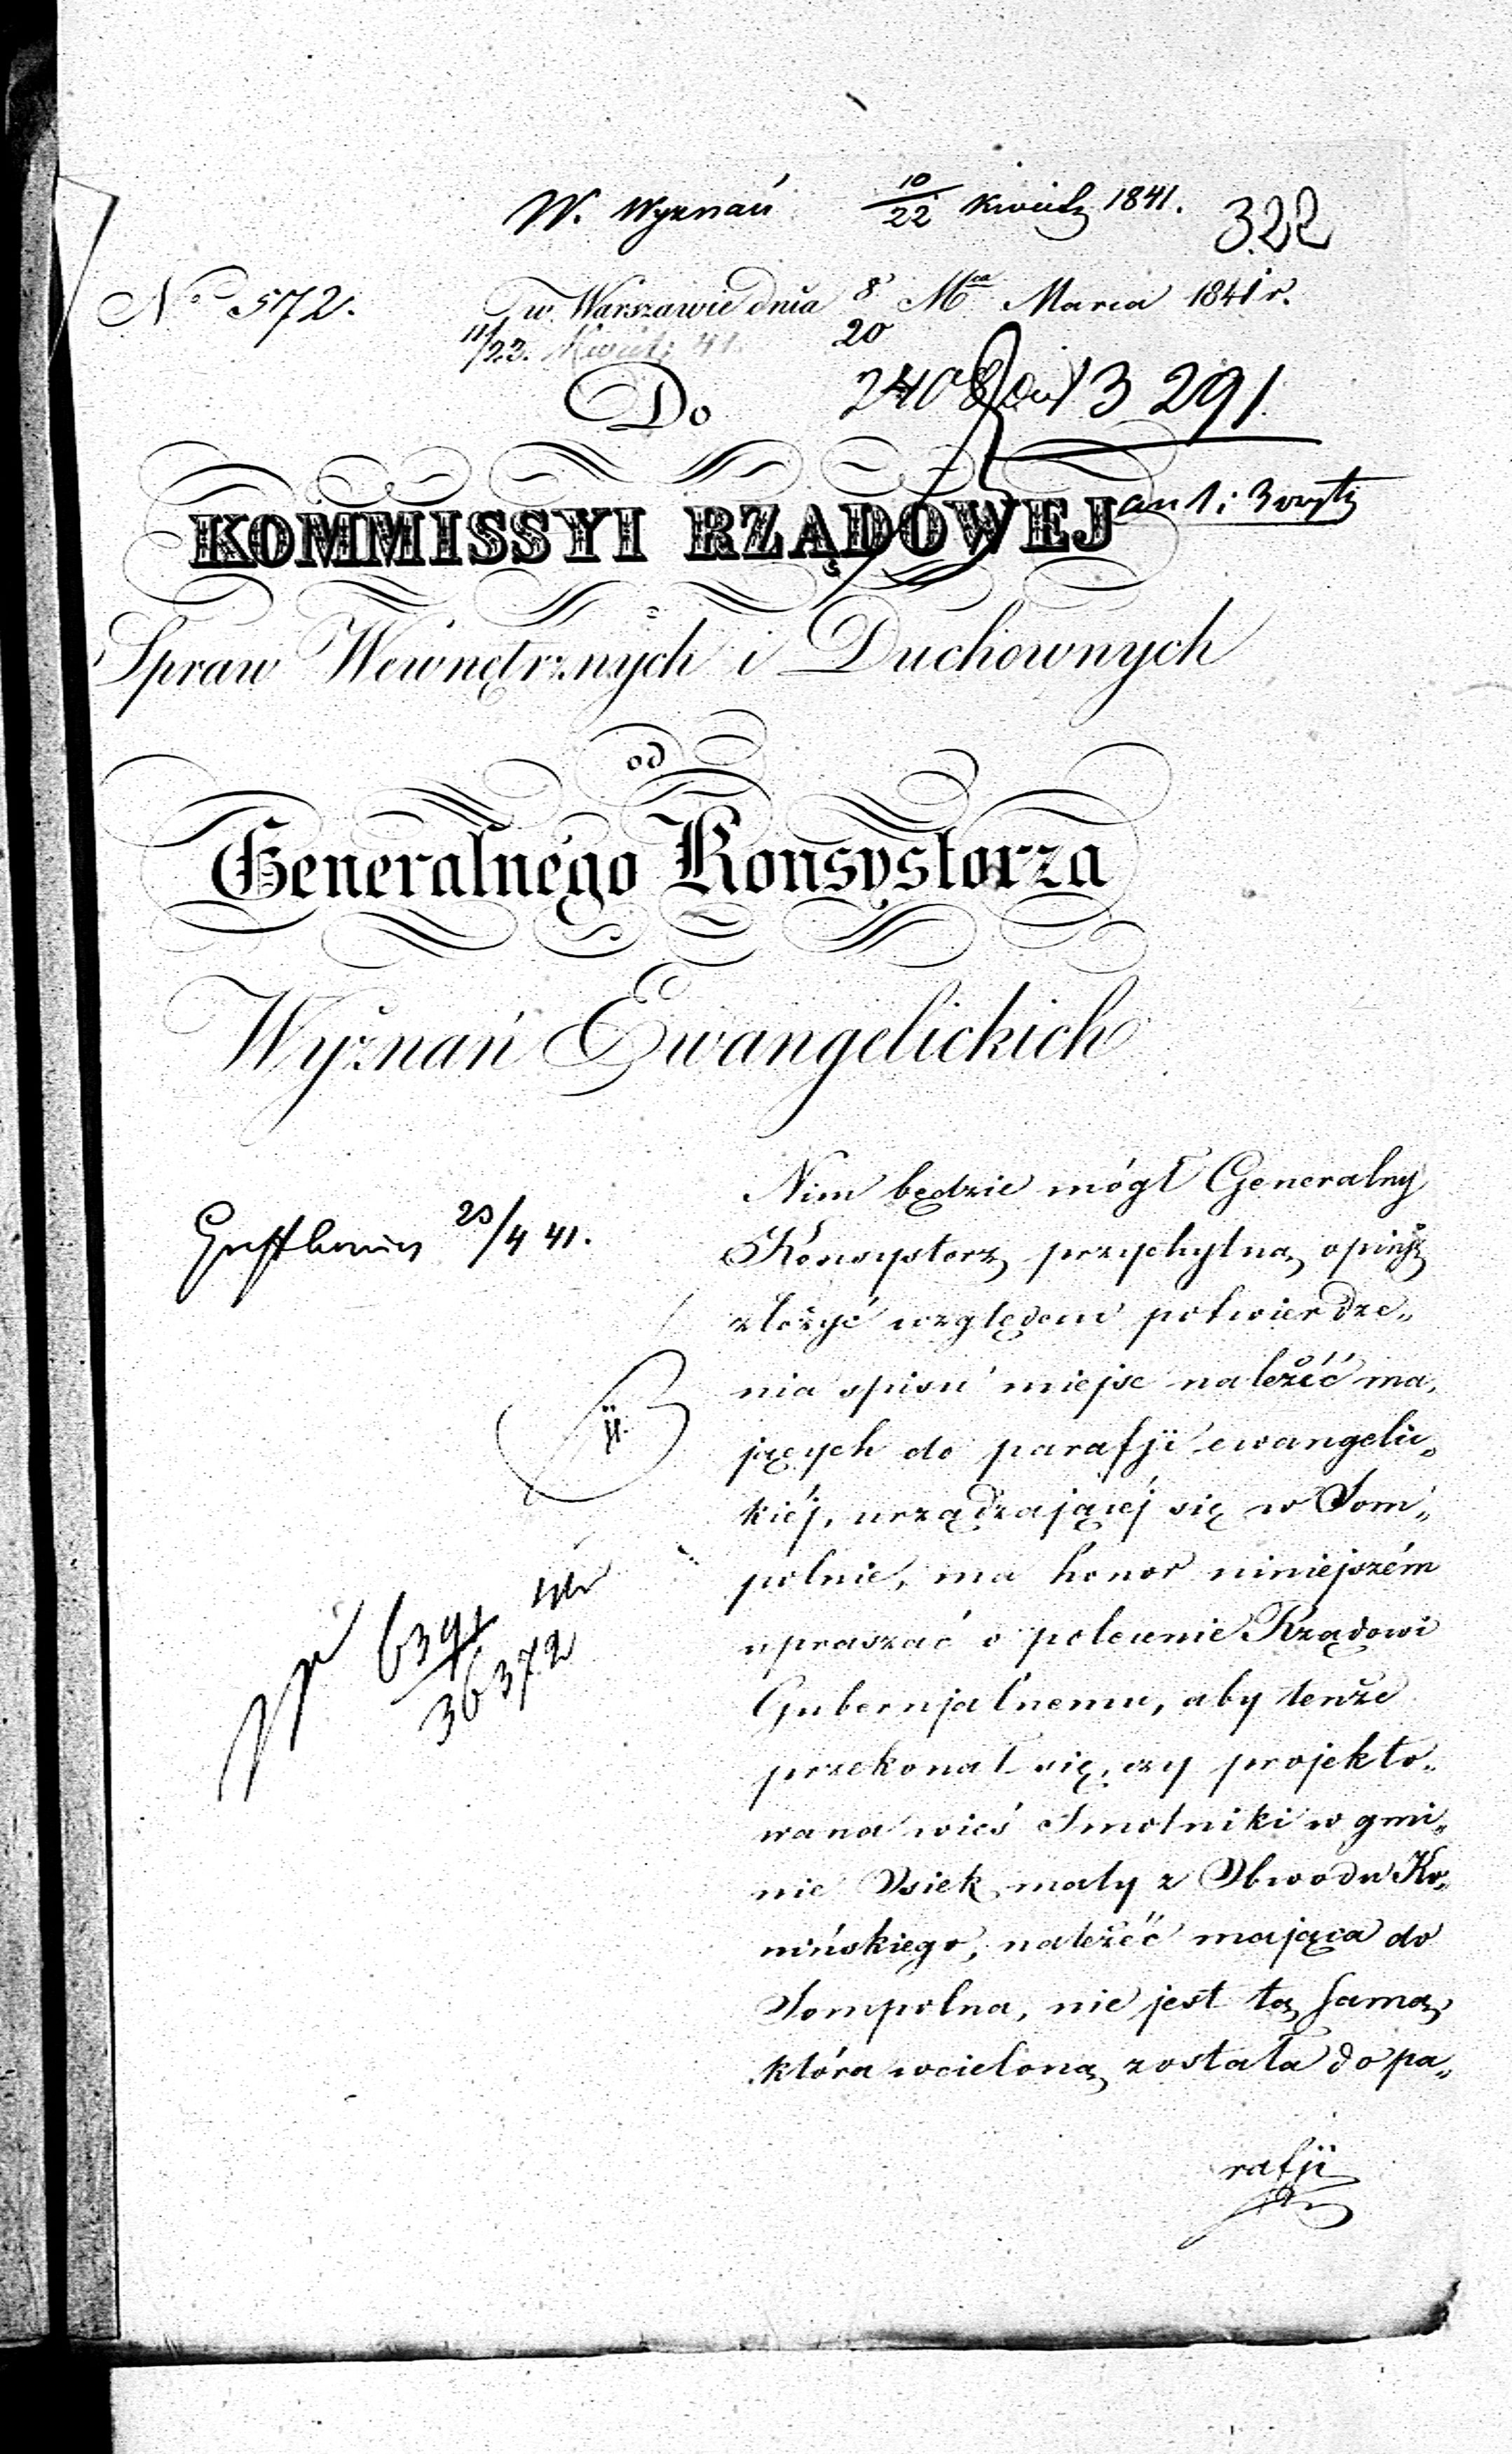 W. Wyznań 10/22 Kwiet 1841.
322
No 572.
w Warszawie dnia 8/20 Mca Marca 1841 r.
11/23. Kwiet: 41.
Do
13 291.
KOMMISSYI RZĄDOWEJ
Spraw Wewnętrznych i Duchownych
od
Generalnego Konsystorza
Wyznań Ewangelickich
23/4 41.
Nim będzie mógł Generalny
Konsystorz przychylną opinją
złożyć względem potwierdze„
nia spisu miejsc należéć ma„
jących do parafji ewangelic„
kiéj, urządzającéj się w Som„
polnie, ma honor niniejszém
upraszać o polecenie Rządowi
Gubernjalnemu, aby tenże
przekonał się, czy projekto„
wana wieś Smolniki w gmi„
nie Osiek mały z Obwodu Ko„
nińskiego, należéć mająca do
Sompolna, nie jest tą samą,
która wcieloną została do pa„
rafji
6391
36372